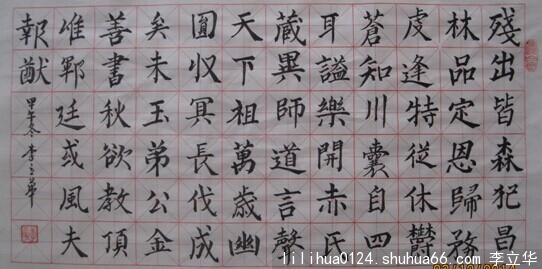 殘出皆森犯昌
林品定恩歸務
虔逢特從休欝
蒼知川囊自四
耳謚樂開赤氏
蔵異師道言聲
天下祖萬歲幽
圓収冥長伐成
矣未玉弟公金
善書秋欲教頂
唯鄆廷或風夫
報猷
甲午冬李立華
lilihua0124.shuhua66.com 李立华